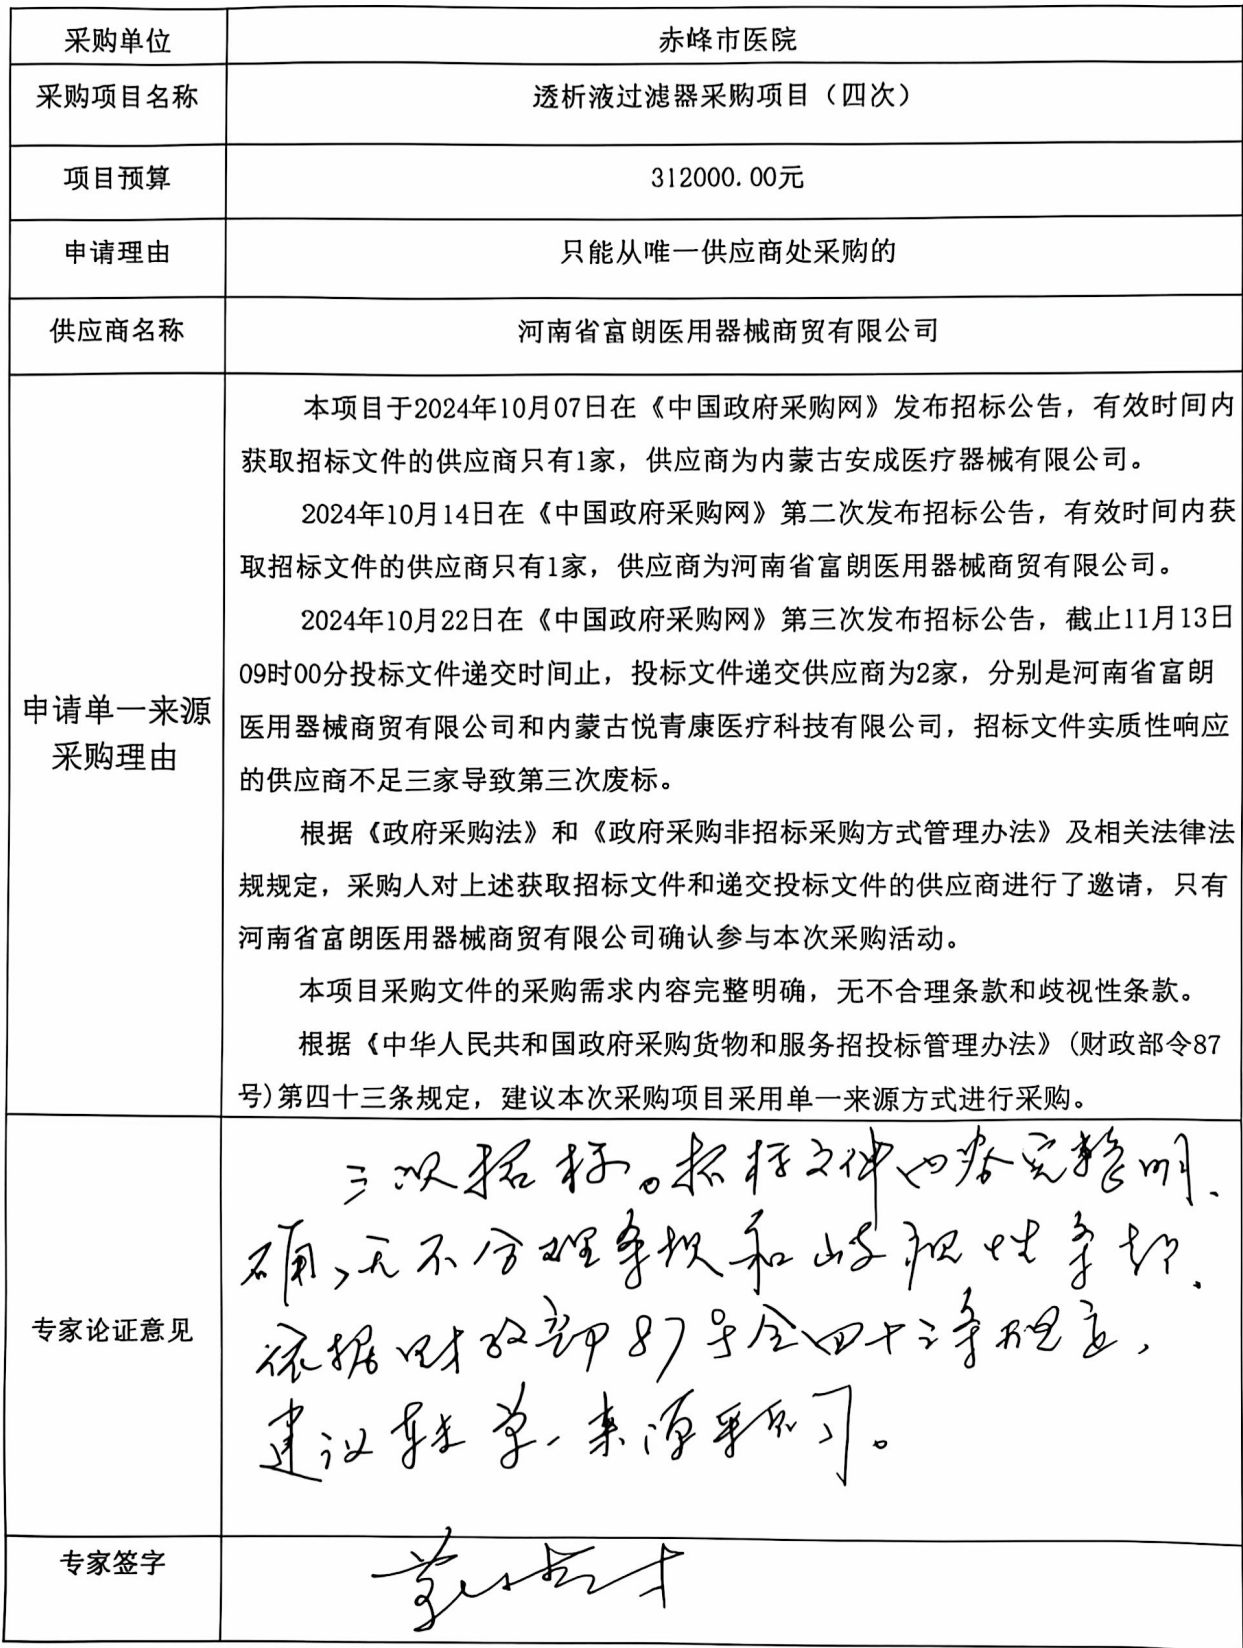 采购单位 赤峰市医院
采购项目名称 透析液过滤器采购项目（四次）
项目预算 312000.00元
申请理由 只能从唯一供应商处采购的
供应商名称 河南省富朗医用器械商贸有限公司
申请单一来源
采购理由
本项目于2024年10月07日在《中国政府采购网》发布招标公告，有效时间内
获取招标文件的供应商只有1家，供应商为内蒙古安成医疗器械有限公司。
2024年10月14日在《中国政府采购网》第二次发布招标公告，有效时间内获
取招标文件的供应商只有1家，供应商为河南省富朗医用器械商贸有限公司。
2024年10月22日在《中国政府采购网》第三次发布招标公告，截止11月13日
09时00分投标文件递交时间止，投标文件递交供应商为2家，分别是河南省富朗
医用器械商贸有限公司和内蒙古悦青康医疗科技有限公司，招标文件实质性响应
的供应商不足三家导致第三次废标。
根据《政府采购法》和《政府采购非招标采购方式管理办法》及相关法律法
规规定，采购人对上述获取招标文件和递交投标文件的供应商进行了邀请，只有
河南省富朗医用器械商贸有限公司确认参与本次采购活动。
本项目采购文件的采购需求内容完整明确，无不合理条款和歧视性条款。
根据《中华人民共和国政府采购货物和服务招投标管理办法》(财政部令87
号)第四十三条规定，建议本次采购项目采用单一来源方式进行采购。
专家论证意见
三次招标。招标文件内容完整明
确，无不合理条款和歧视性条款，
依据财政部87号令四十三条规定，
建议转单一来源采购。
专家签字